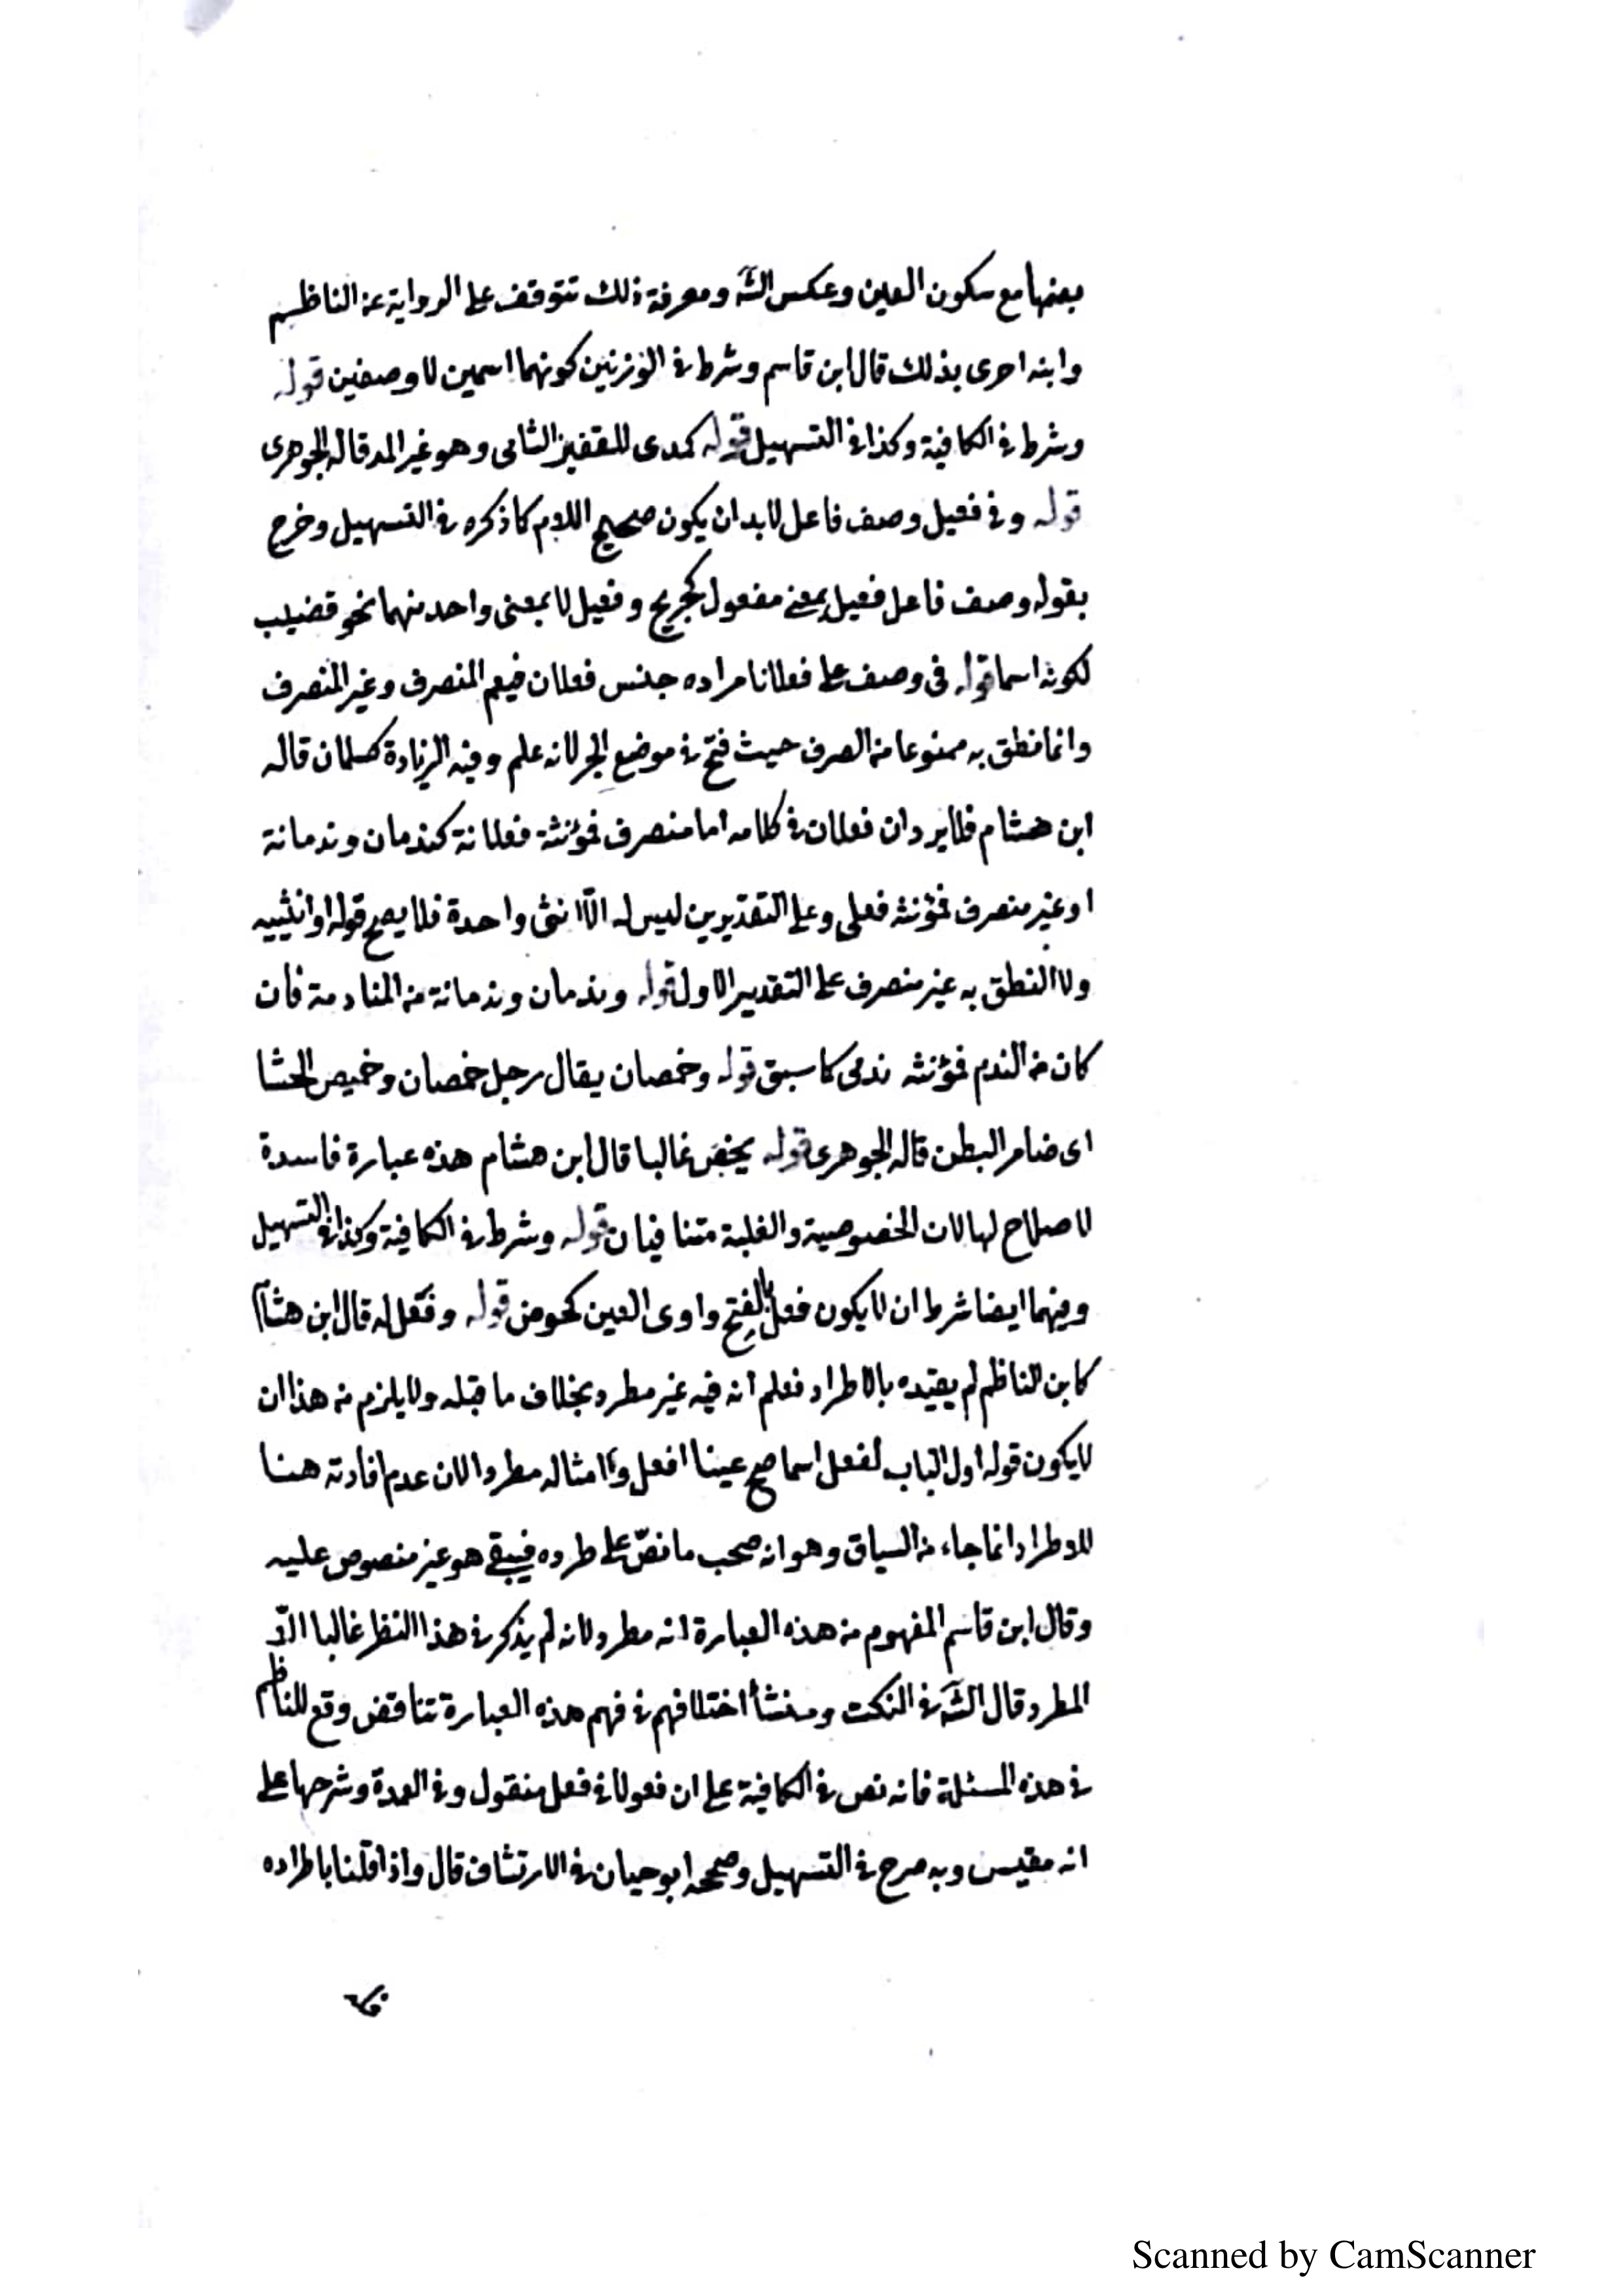 بضمها مع سكون العين وعكس الشَّ ومعرفة ذلك تتوقف على الرواية عن الناظم
وابنه احرى بذلك قال ابن قاسم وشرط في الوزنين كونهما اسمين لا وصفين قوله
وشرط في الكافية وكذا في التسهيل قوله كمدى للقفيز الشامى وهو غير المد قاله الجوهرى
قوله وفي فعيل وصف فاعل لا بد ان يكون صحيح اللام كما ذكره في التسهيل وخرج
بقوله وصف فاعل فعيل بمعنى مفعول كجريح وفعيل لا بمعنى واحد منهما نحو قضيب
لكونه اسما قوله في وصف على فعلانا مراده جنس فعلان فيعم المنصرف وغير المنصرف
وانما نطق به ممنوعا من الصرف حيث فتح في موضع الجر لانه علم وفيه الزيادة كسلمان قاله
ابن هشام فلا يرد ان فعلان في كلامه اما منصرف فمؤنثة فعلانة كندمان وندمانة
او غير منصرف فمؤنثه فعلى وعلى التقديرين ليس له الّا انثى واحدة فلا يصح قوله او انثييه
ولا النطق به غير منصرف على التقدير الاول قوله وندمان وندمانة من المنادمة فان
كان من الندم فمؤنثه ندمى كما سبق قوله وخمصان يقال رجل خمصان وخميص الحشا
اى ضامر البطن قاله الجوهرى قوله يخص غالبا قال ابن هشام هذه عبارة فاسدة
لا صلاح لها لان الخصوصية والغلبة متنافيان قوله وشرط في الكافية وكذا في التسهيل
وفيهما ايضا شرط ان لا يكون فعل بالفتح واوى العين كحوض قوله وفَعَل له قال ابن هشام
كابن الناظم لم يقيده بالاطراد فعلم انه فيه غير مطرد بخلاف ما قبله ولا يلزم من هذا ان
لا يكون قوله اول الباب لفعل اسما صح عينا افعل وامثاله مطردا لان عدم افادته هنا
للاطراد انما جاء من السياق وهو انه صحب ما نصّ على طرده فيبقى هو غير منصوص عليه
وقال ابن قاسم المفهوم من هذه العبارة انه مطرد لانه لم يذكر في هذا النظم غالبا الاّ
المطرد وقال الشَّ في النكت ومنشأ اختلافهم في فهم هذه العبارة تناقض وقع للناظم
في هذه المسئلة فانه نص في الكافية على ان فعولا في فعل منقول وفي العمدة وشرحها على
انه مقيس وبه صرح في التسهيل وصححه ابو حيان في الارتشاف قال واذا قلنا باطراده
Scanned by CamScanner